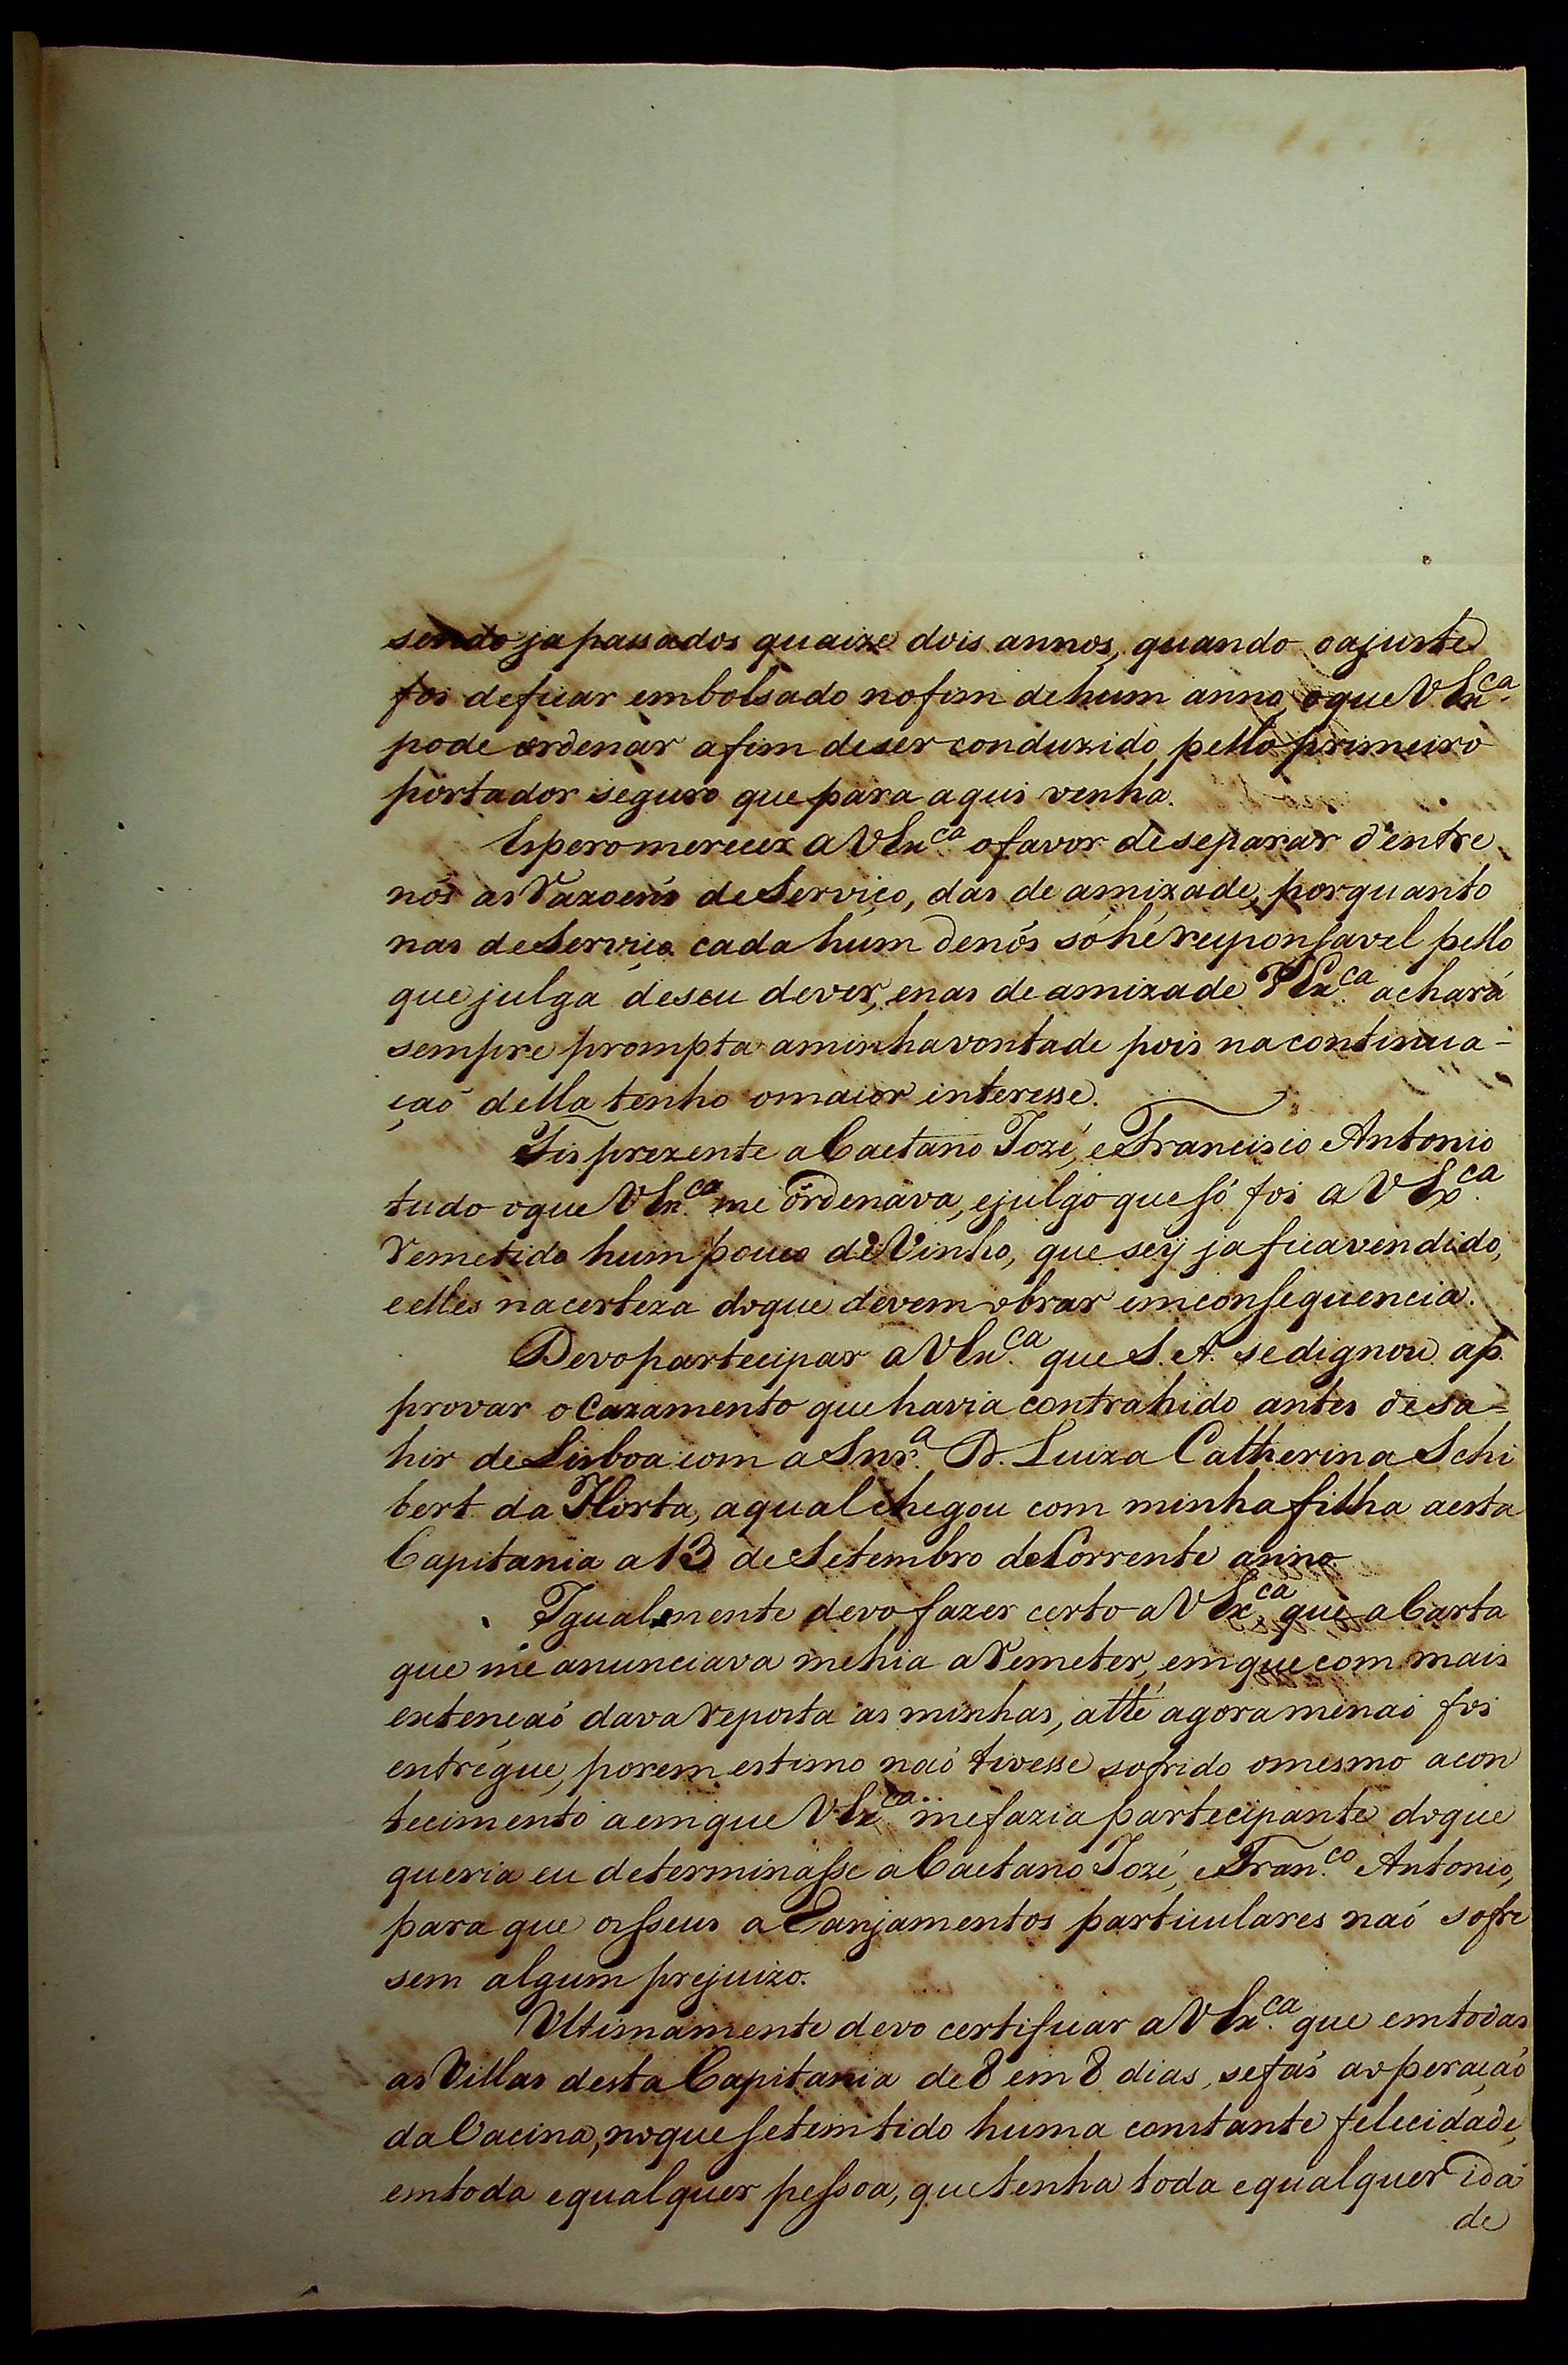 sendo ja passados quaize dois annos, quando o ajuste
foi de ficar embolsado no fim de hum anno, o que V Exca.
pode ordenar a fim de ser conduzido, pello primeiro
portador seguro que para aqui venha.
Espero merecer a V Exca. o favor de separar d'entre
nós as razoens de Serviço, das de amizade, porquanto
nas de Serviço cada hum de nós só hé responsavel pello
que julga de seu dever, e nas de amizade V Exca. achará
sempre prompta a minha vontade pois na continua-
çaõ della tenho o maior interesse.
Fis prezente a Caetano Jozé, e Francisco Antonio
tudo o que V Exca. me ordenava, e julgo que só foi a V Exca.
remetido hum pouco de Vinho, que seÿ ja fica vendido,
e elles na certeza do que devem obrar em consequencia.
Devo partecipar a V Exca. que S. A. se dignou ap
provar o Cazamento que havia contrahido antes de sa=
hir de Lisboa com a Snra. D. Luiza Catherina Schi
bert da Horta, a qual chegou com minha filha a esta
Capitania a 13 de Setembro do Corrente anno.
Igualmente devo fazer certo a V Exca. que a Carta
que me anunciava me hia a remeter, em que com mais
extençaõ dava reposta as minhas, atté agora me naõ foi
entregue, porem estimo naõ tivesse sofrido o mesmo acon
tecimento a em que V Exca. me fazia partecipante do que
queria eu determinasse a Caetano Jozé, e Franco. Antonio,
para que os seus aRanjamentos particulares naõ sofre
sem algum prejuizo.
Ultimamente devo certificar a V Exca. que em todas
as Villas desta Capitania de 8 em 8 dias, se fás a operaçaõ
da Vacina, no que se tem tido huma constante felecidade,
em toda e qualquer pessoa, que tenha toda e qualquer ida
de